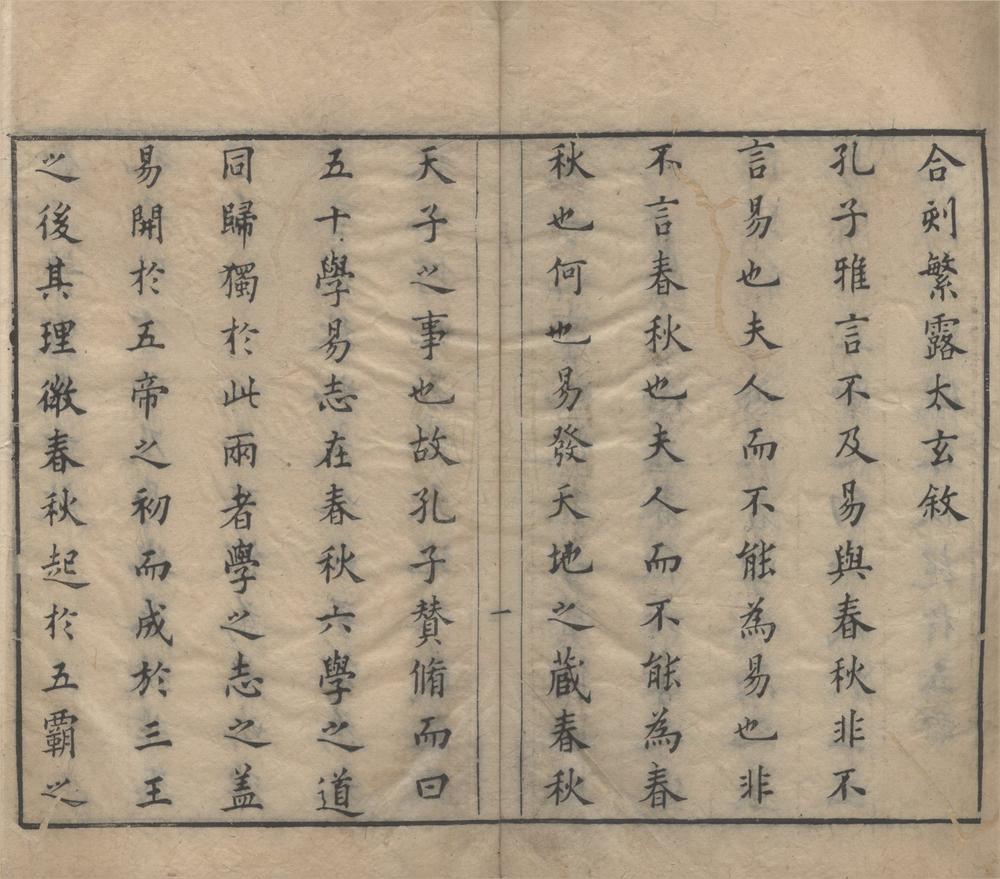 合刻繁露太玄敘
孔子雅言不及易與春秋非不
言易也夫人而不能為易也非
不言春秋也夫人而不能為春
秋也何也易發天地之蔵春秋
一
天子之事也故孔子賛脩而曰
五十學易志在春秋六學之道
同歸獨於此兩者學之志之盖
易開於五帝之初而成於三王
之後其理微春秋起於五覇之